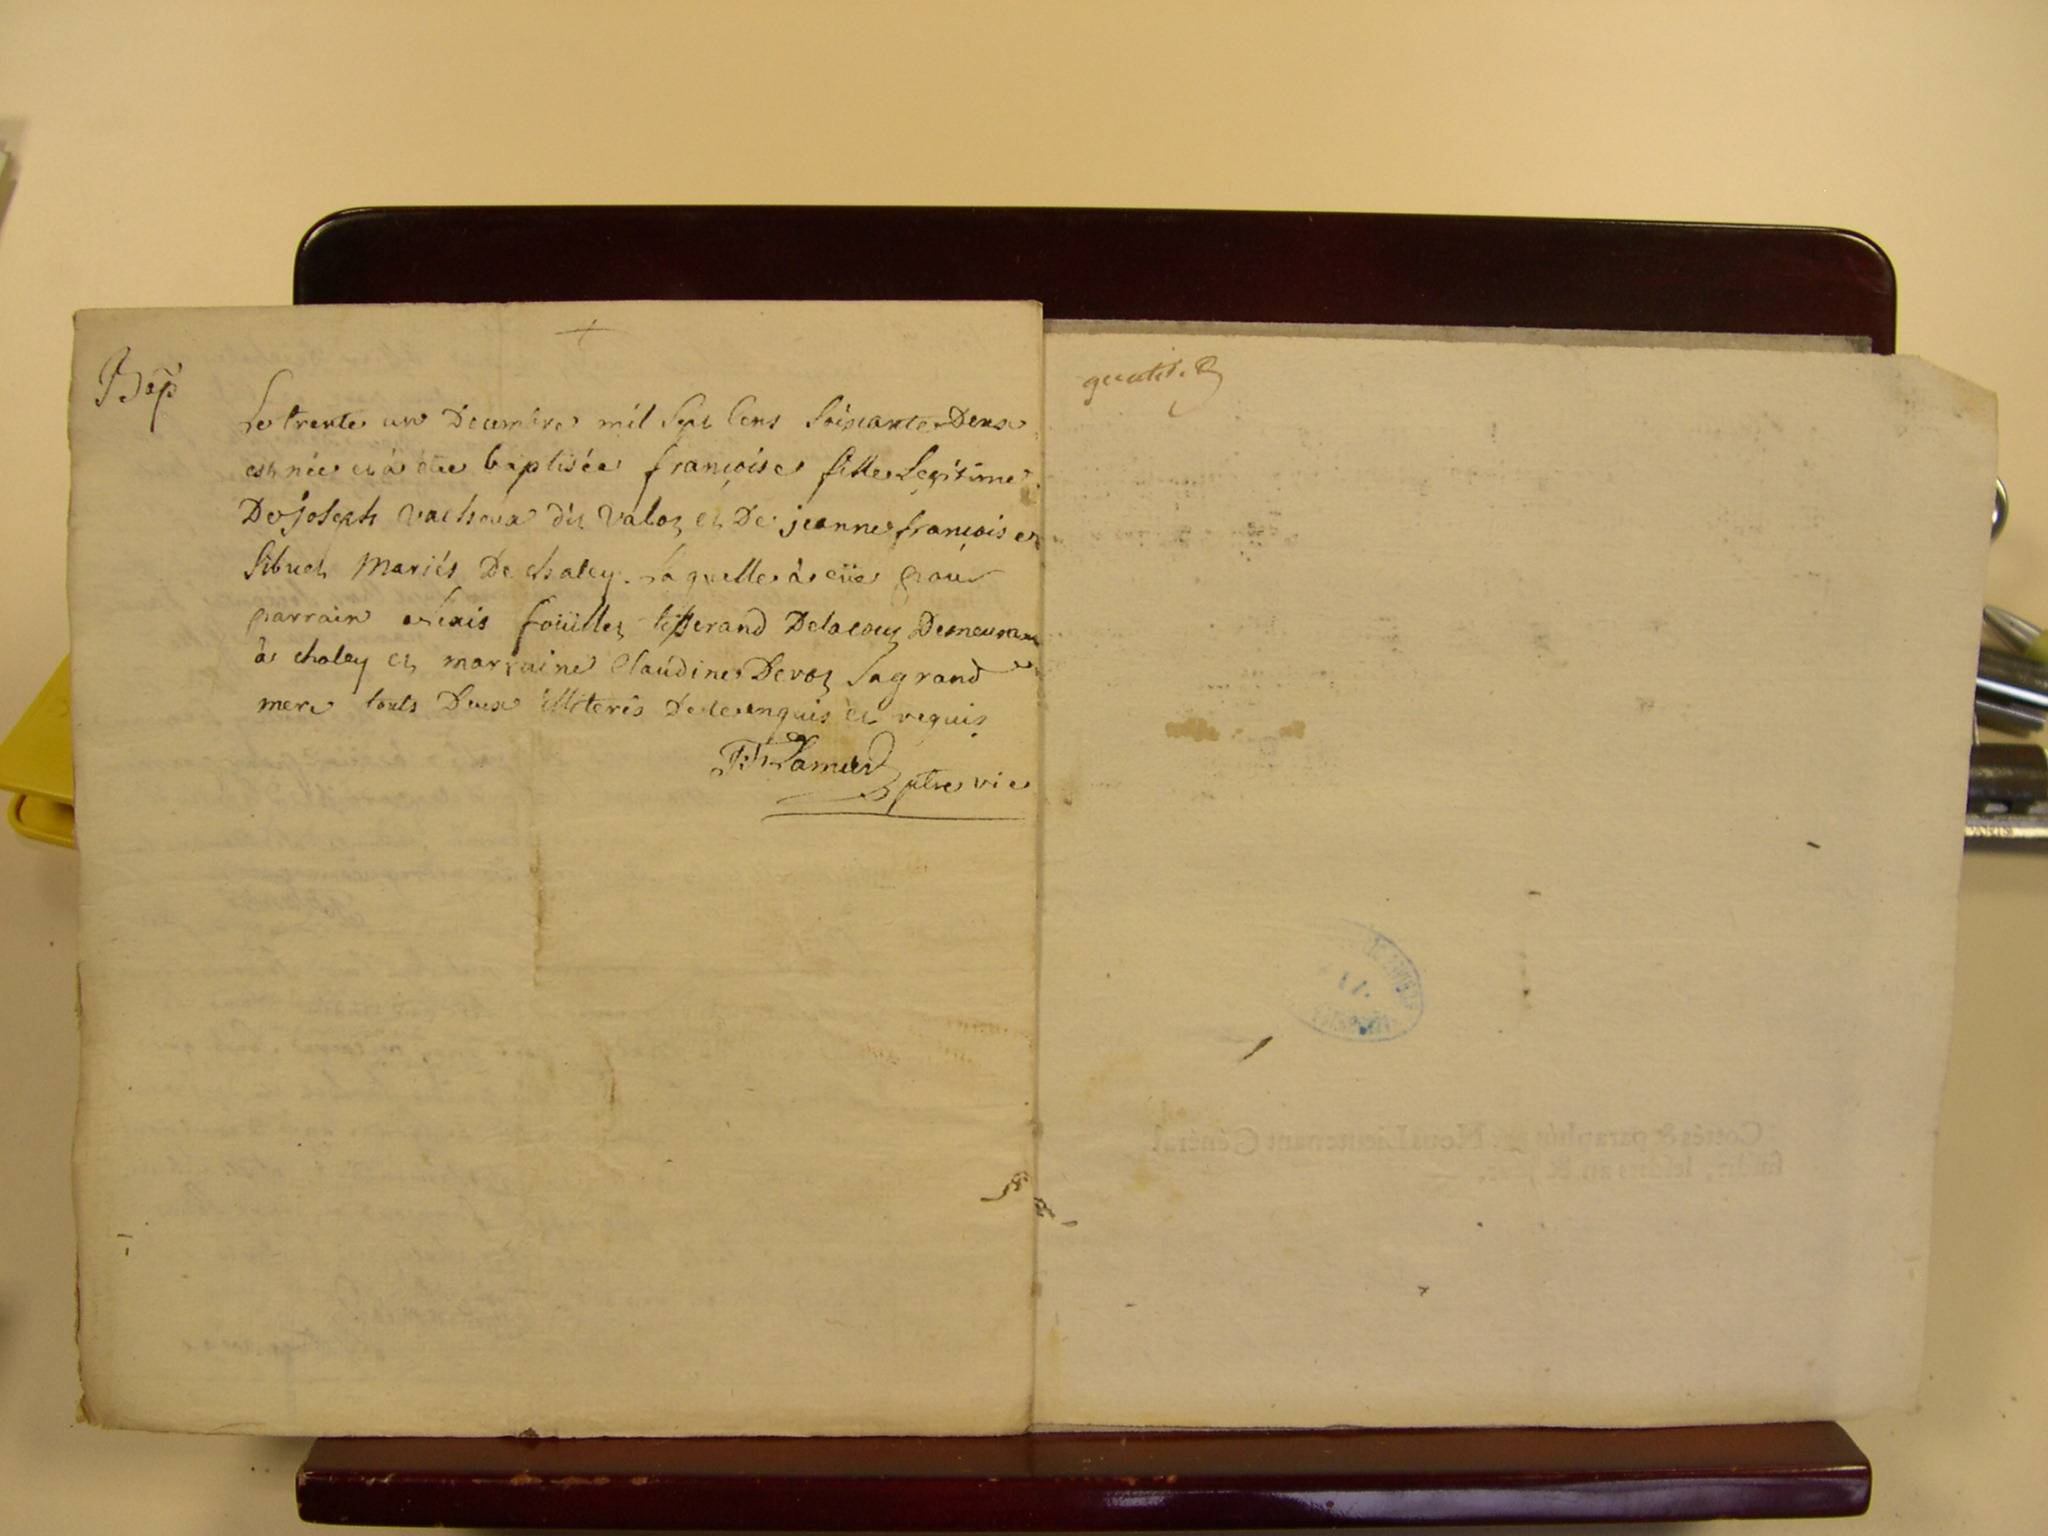 Bap
Le trente un Decembre mil Sept Cens Soixante Deux
est née et à étée baptisée françoise fille Legitime
De joseph Vacheux dit Valoz et De jeanne françoise
Sibuet Mariés De chaley. Laquelle à eüe pour
parrain Alexis foüillet tisserand Delacoux Demeurant
à chaley et marraine Claudine Devoz Sa grand
mere touts Deux illiterés De ce enquis et requis
ptre vic
gratis.
Cottés & paraphés Nous Lieutenant Général